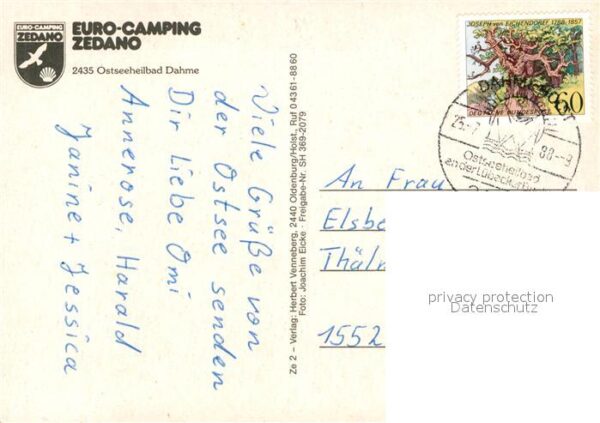 EURO-CAMPING
ZEDANO
EURO-CAMPING
ZEDANO
2435 Ostseeheilbad Dahme
Viele Grüße von
der Ostsee senden
Dir Liebe Omi
Annerose, Harald
Janine + Jessica
Ze 2 – Verlag: Herbert Venneberg, 2440 Oldenburg/Holst., Ruf 04361-8860
Foto: Joachim Eicke · Freigabe-Nr. SH 369-2079
JOSEPH von EICHENDORFF 1788-1857
60
DEUTSCHE BUNDESPOST
DAHME
88--9
Ostseeheilbad
an der Lübeck
An Frau
Elsbe
Thäl
1552
privacy protection
Datenschutz